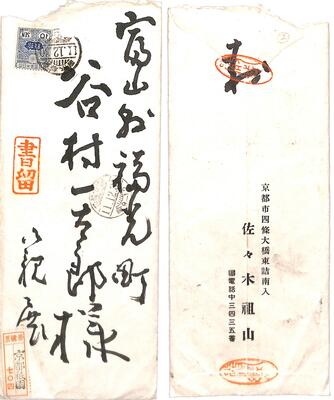 富山县福光町
谷村一太郎様
親展
書留
11.12
京都祇園
七〇四
京都市四條大橋東詰南入
佐々木祖山
電話中三四三五番